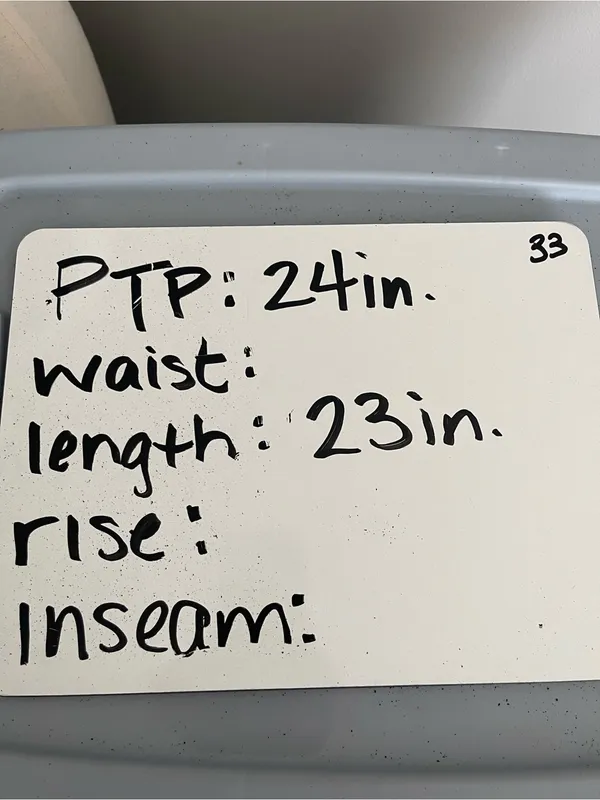 33
PTP: 24in.
waist:
length: 23in.
rise:
Inseam: